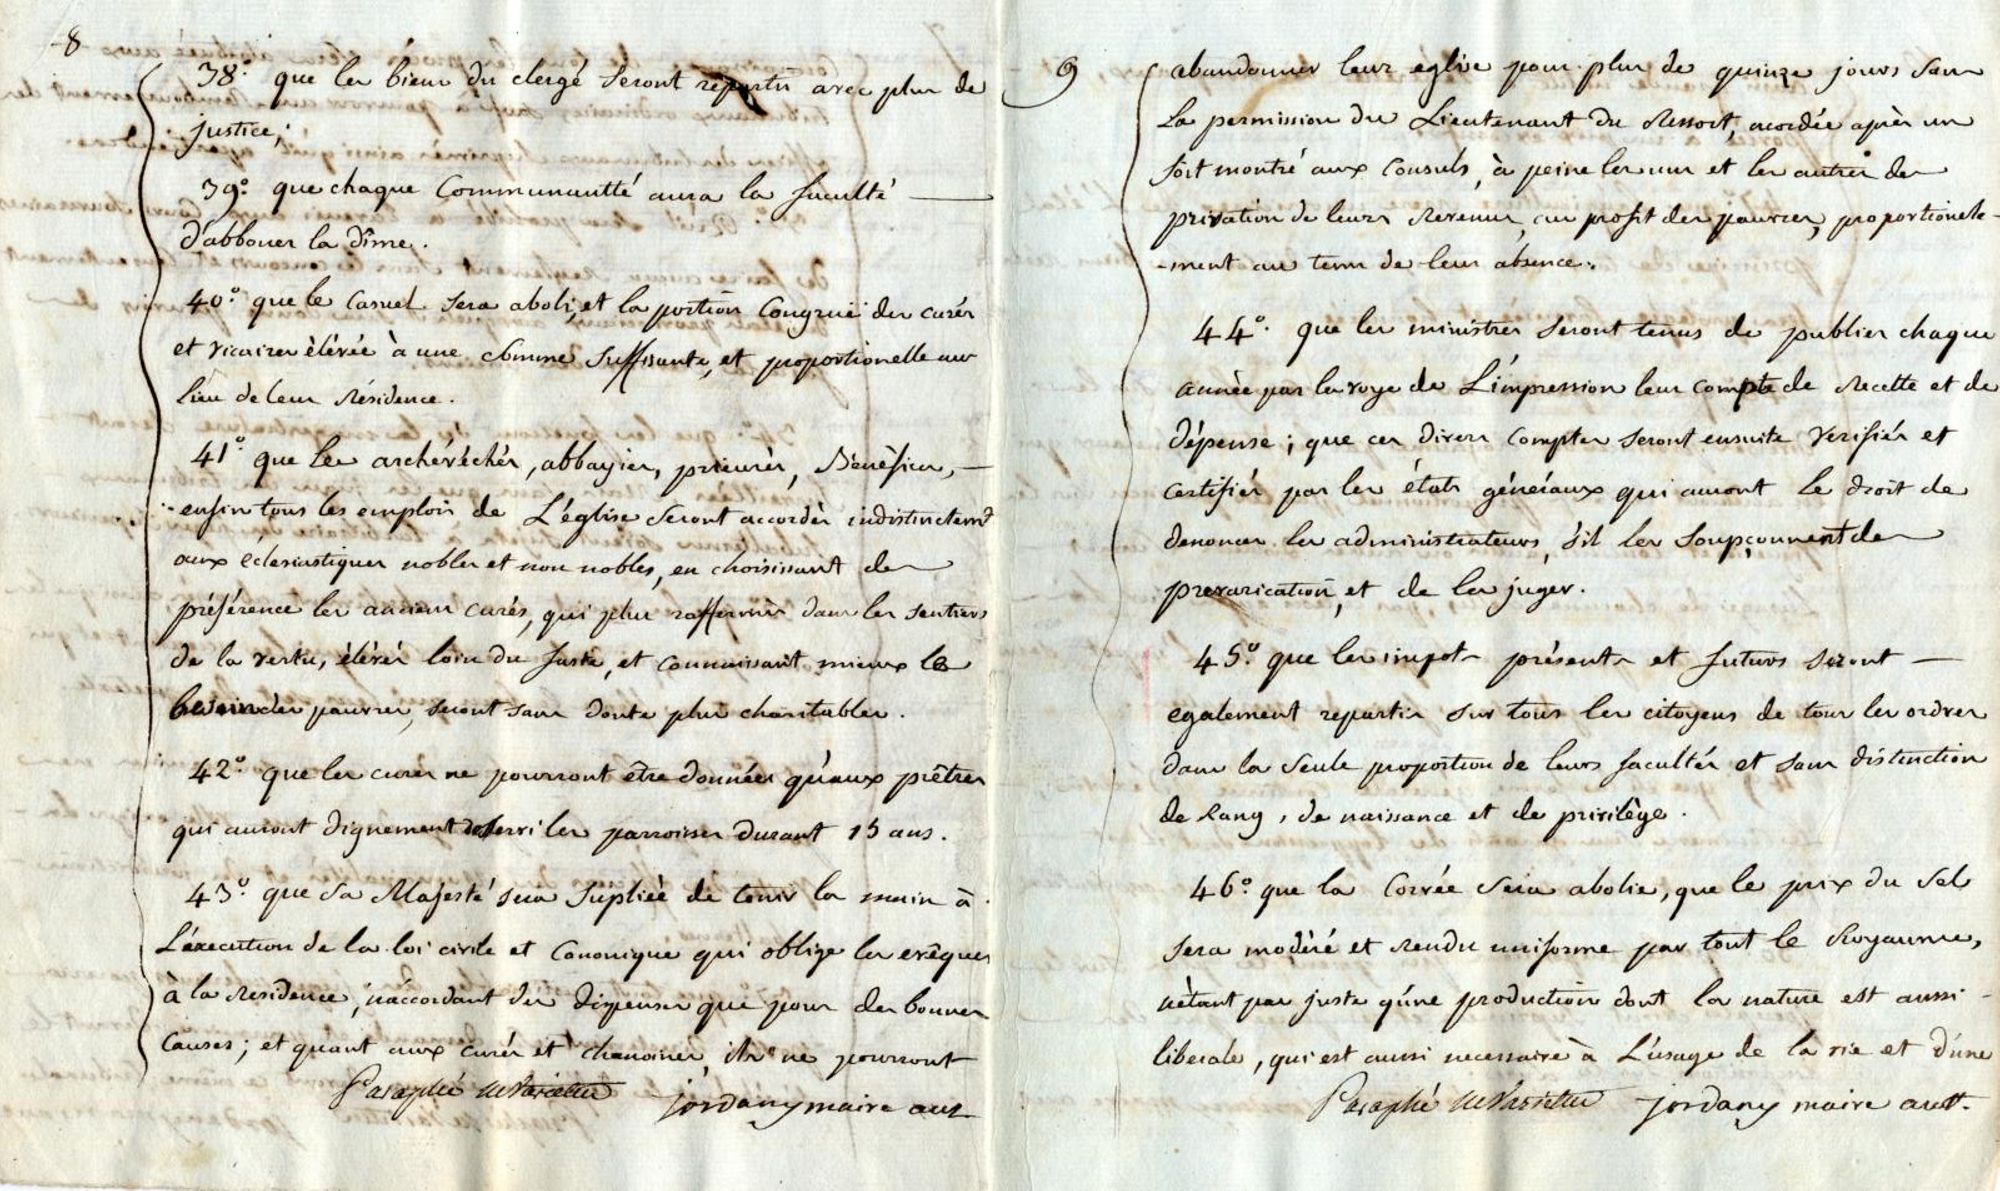 8
38° que les biens du clergé seront répartis avec plus de
justice;
39° que chaque Communauté aura la faculté
d'abboner la dîme.
40° que le Casuel sera aboli, et la portion Congruë des curés
et vicaires élévée à une somme suffisante, et proportionelle au
lieu de leur résidence.
41° que les archévéchés, abbayies, prieurés, Bénéfices,
enfin tous les emplois de L'église seront accordés indistinctemt
aux éclesiastiques nobles et non nobles, en choisissant de
préférence les anciens curés, qui plus raffermis dans les sentiers
de la vertu, élévés loin du faste, et connaissant mieux les
besoins des pauvres, seront sans doute plus charitables.
42° que les cures ne pourront être données qu'aux prêtres
qui auront dignement desservi les parroisses durant 15 ans.
43° que sa Majesté sera supliée de tenir la main à
L'éxecution de la loi civile et Canonique qui oblige les evêques
à la residence, n'accordant des dispenses que pour des bonnes
Causes; et quant aux curés et chanoines, ils ne pourront
Paraphé jordany maire aut
9
abandonner leur eglise pour plus de quinze jours sans
La permission du Lieutenant du Ressort, acordée après un
soit montré aux Consuls, à peine les uns et les autres de
privation de leurs Revenus, au profit des pauvres, proportionele-
-ment au tems de leur absence.
44° que les ministres seront tenus de publier chaque
année par la voye de L'impression leur compte de Recette et de
dépense; que ces divers Comptes seront ensuite verifiés et
certifiés par les états généraux qui auront le droit de
denoncer les administrateurs, s'il les soupçonnent de
prevarication, et de les juger.
45° que les impots présents et futurs seront
egalement repartis sur tous les citoyens de tous les ordres
dans la seule proportion de leurs facultés et sans distinction
de Rang, de naissance et de privilège.
46° que la Corvée sera abolie, que le prix du sel
sera modéré et rendu uniforme par tout le Royaume,
n'ètant pas juste qu'une production dont la nature est aussi
liberale, qui est aussi necessaire à L'usage de la vie et d'une
Paraphé jordany maire aut.